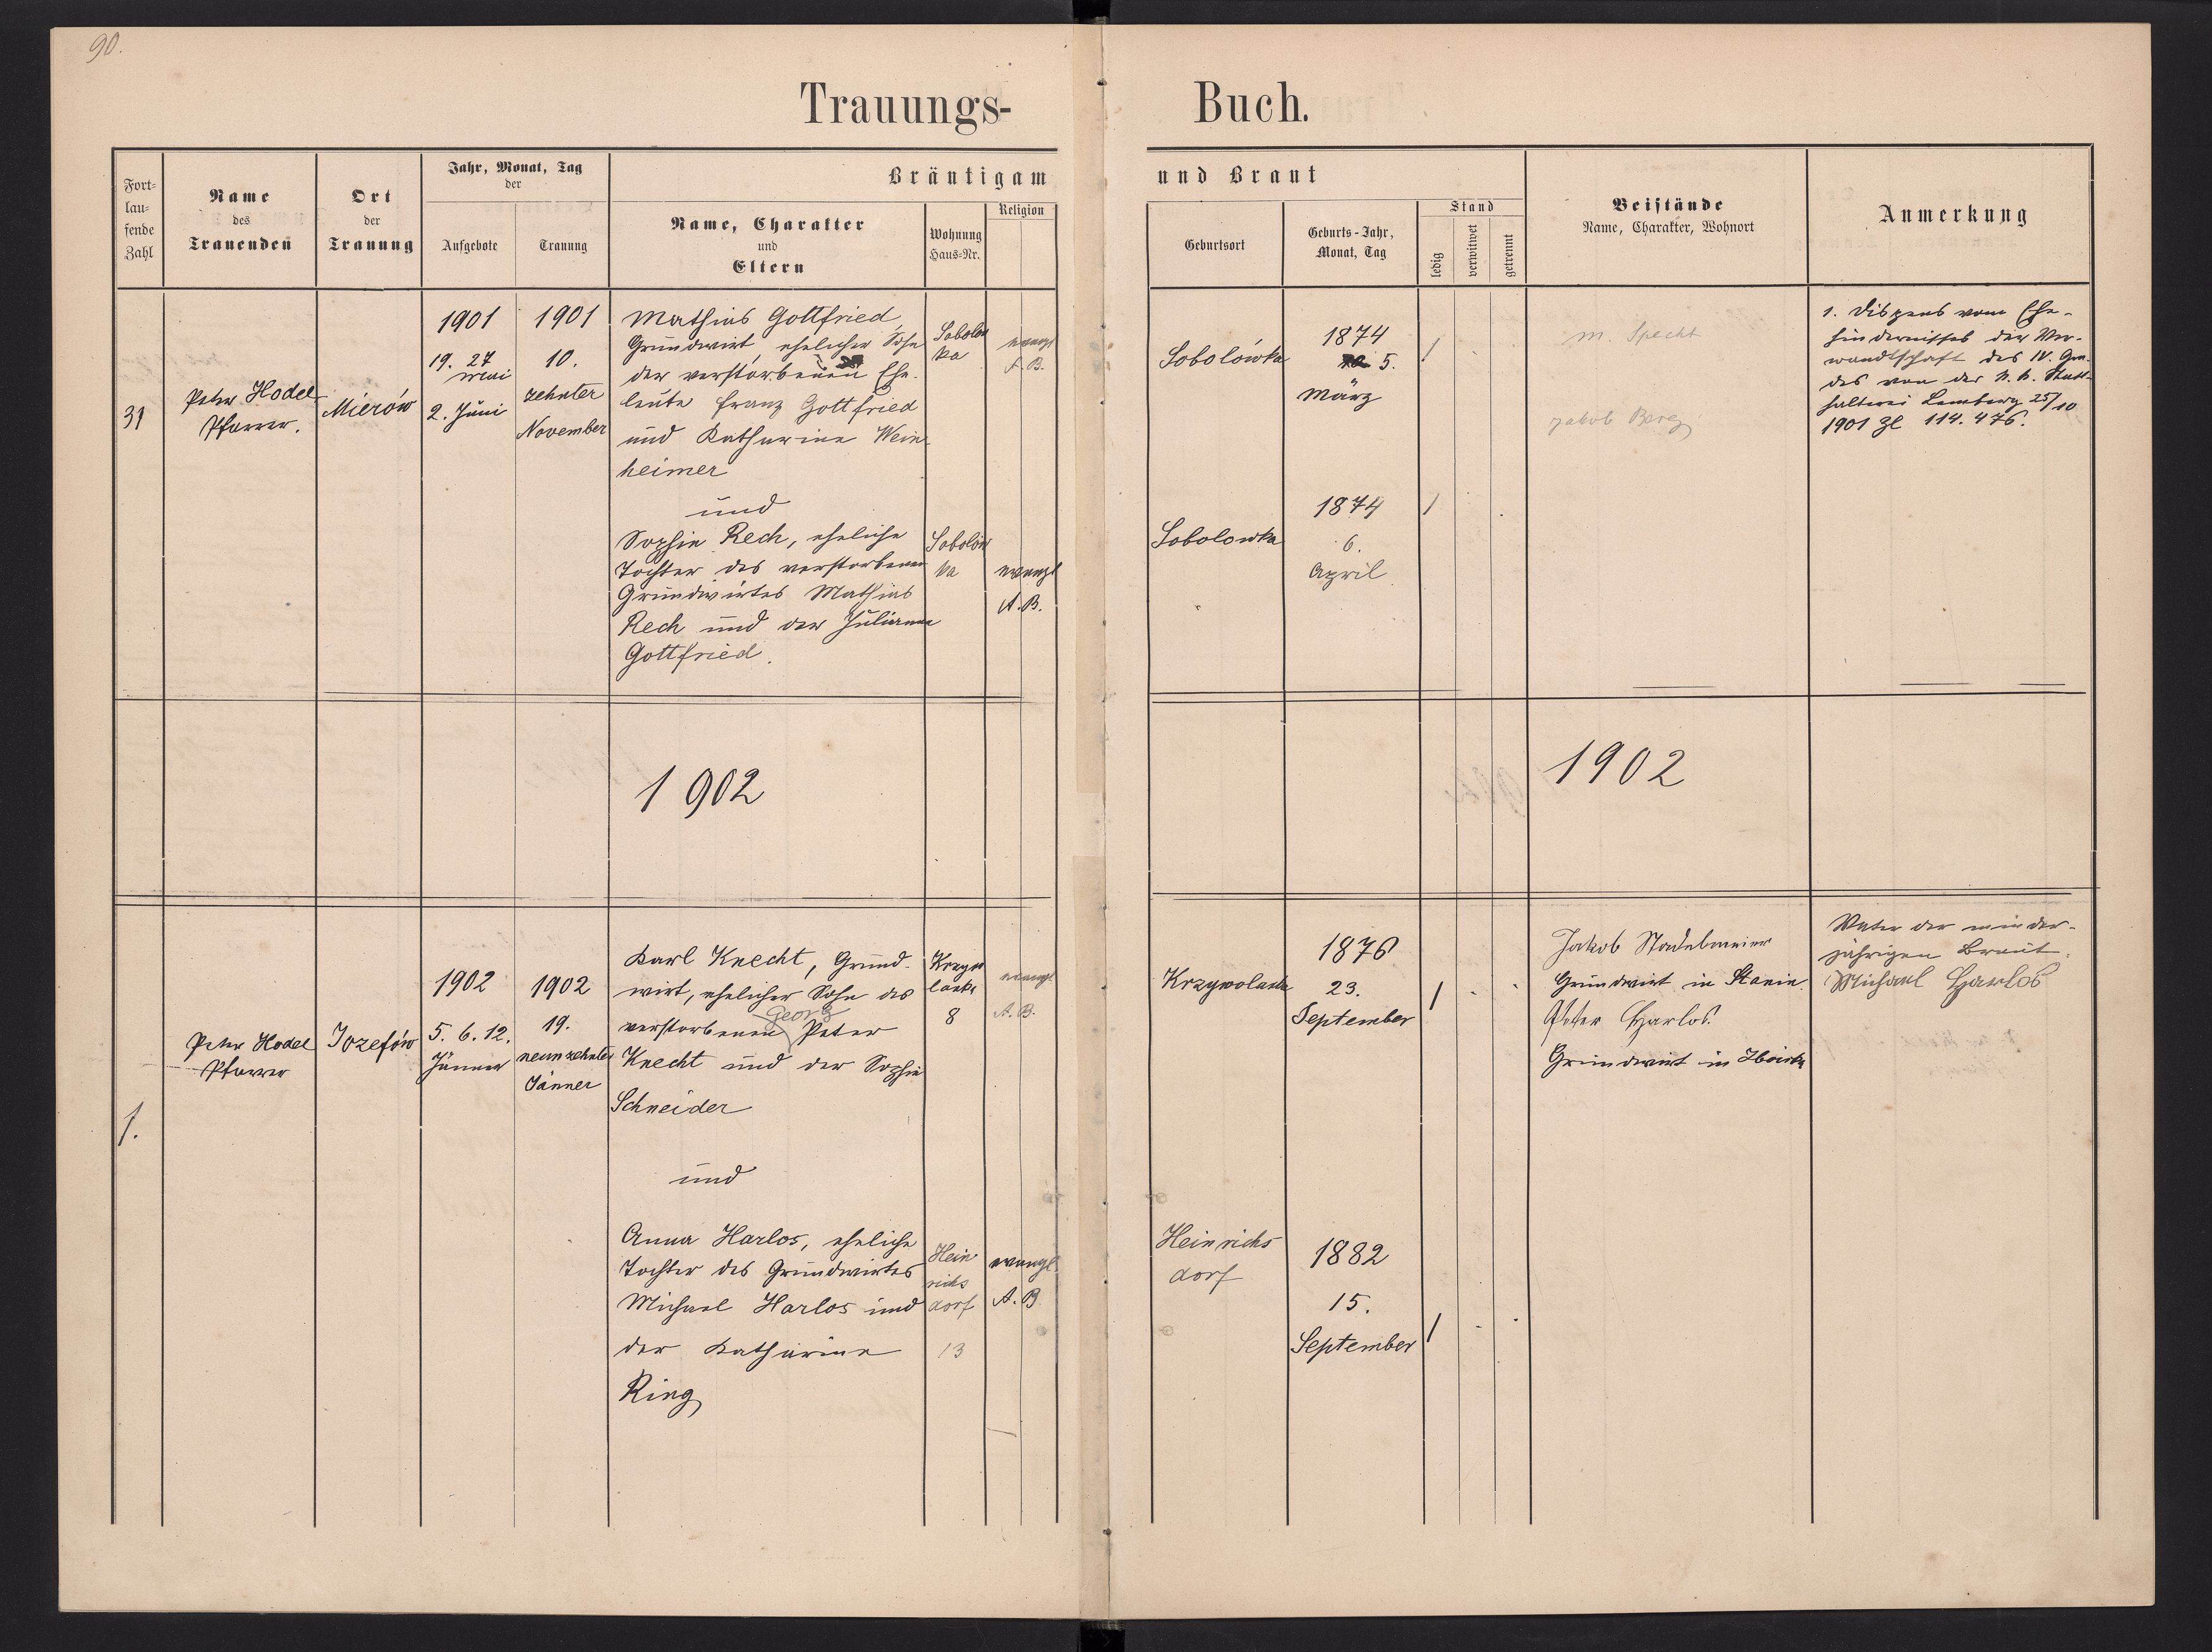 90.
Trauungs-Buch.
Fort-
lau-
fende
Zahl
Name
des
Trauenden
Ort
der
Trauung
Jahr, Monat, Tag
der
Aufgebote
Trauung
Bräutigam und Braut
Name, Charakter
und
Eltern
Wohnung
Haus-Nr.
Religion
Geburtsort
Geburts-Jahr,
Monat, Tag
Stand
ledig
verwitwet
getrennt
Beistände
Name, Charakter, Wohnort
Anmerkung
31
Peter Hodel
Pfarrer.
Mierów
1901
19. 27
Mai
2. Juni
1901
10.
zehnter
November
Mathias Gottfried,
Grundwirt, ehelicher Sohn
der verstorbenen Ehe-
leute Franz Gottfried
und Katharine Wein
heimer
Sobolów
ka
evangl
A.B.
Sobolówka
1874
5.
März
/
M. Specht
Jakob Berg
1. Dispens vom Ehe-
hindernisses der Ver-
wandtschaft des IV. Gra-
des von der k. k. Statt-
halterei Lemberg 25/10
1901 Zl 114.476.
und
Sophie Rech, eheliche
Tochter des verstorbenen
Grundwirtes Mathias
Rech und der Julianna
Gottfried.
Sobolów
ka
evangl
A.B.
Sobolowka
1874
6.
April
/
1902
1902
1.
Peter Hodel
Pfarrer
Jozefów
1902
5. 6. 12.
Jänner
1902
19.
neunzehnter
Jänner
Karl Knecht, Grund-
wirt, ehelicher Sohn des
Georg
verstorbenen Peter
Knecht und der Sophie
Schneider
8
evangl
A.B.
1876
23.
September
/
Jakob
Grundwirt in Stanin
Peter Harlos
Grundwirt in
Vater der minder-
jährigen Braut.
Michael Harlos
und
Anna Harlos, eheliche
Tochter des Grundwirtes
Michael Harlos und
der Katharine
Ring
Hein
richs
dorf
13
evangl.
A.B.
Heinrichs
dorf
1882
15.
September
/